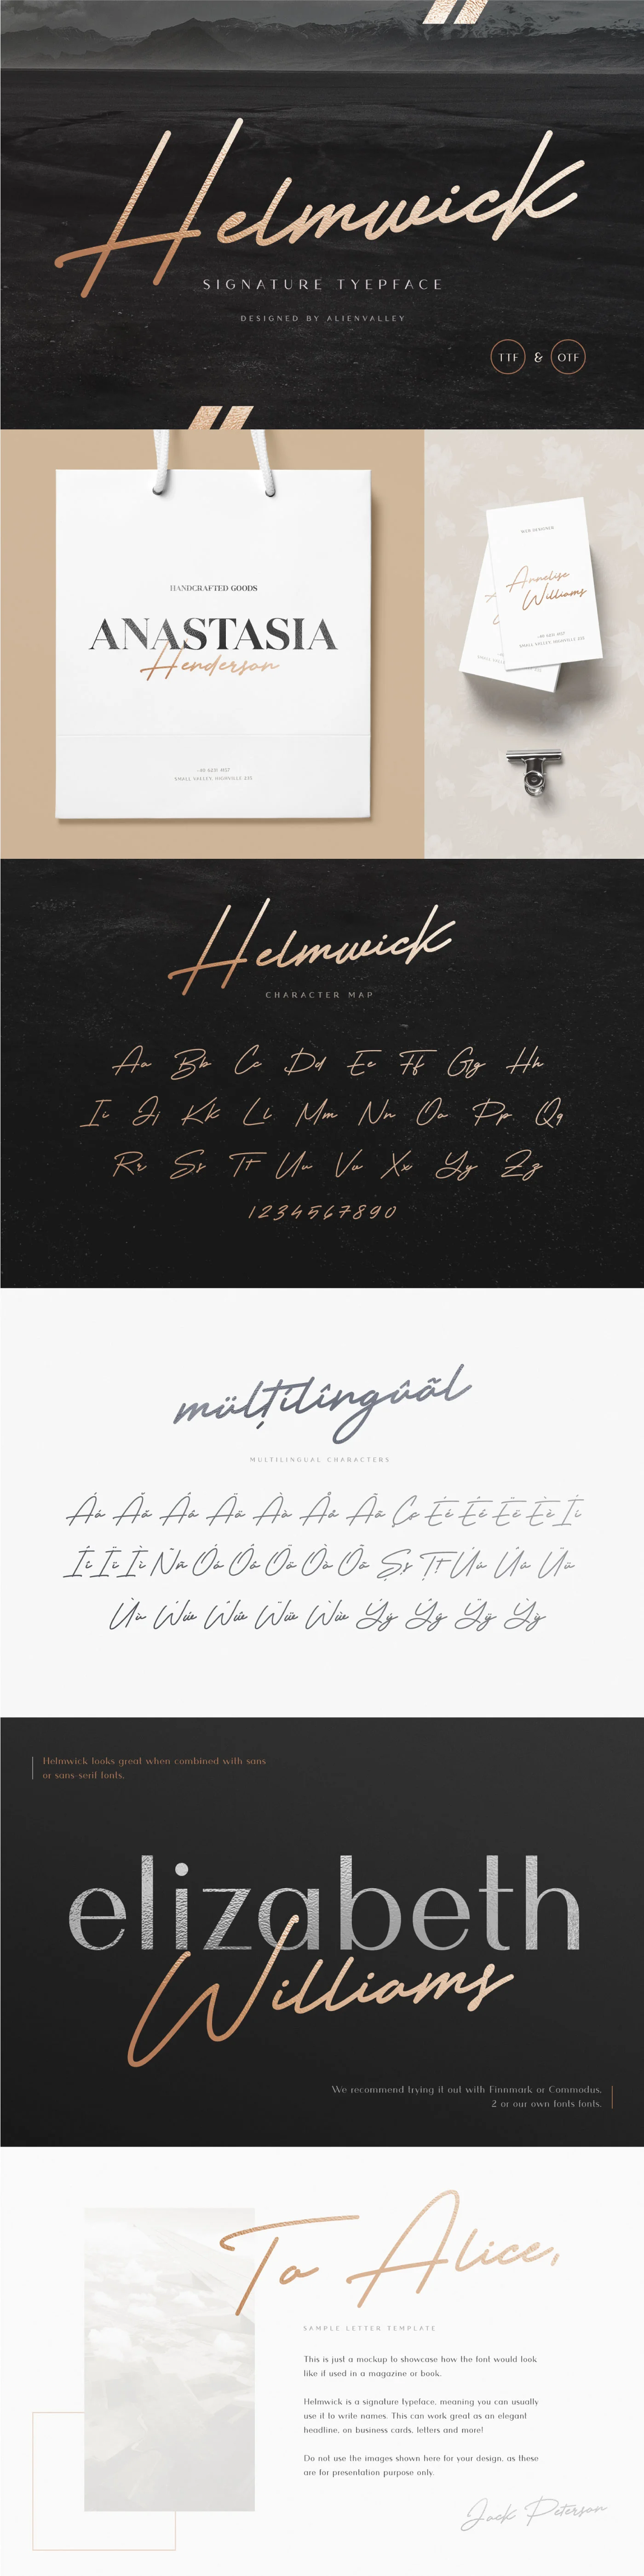 Helmwick
SIGNATURE TYEPFACE
DESIGNED BY ALIENVALLEY
TTF & OTF
HANDCRAFTED GOODS
ANASTASIA
Henderson
SMALL VALLEY, HIGHVILLE
WEB DESIGNER
Annelise
Williams
Helmwick
CHARACTER MAP
Aa Bb Cc Dd Ee Ff Gg Hh
Ii Jj Kk Ll Mm Nn Oo Pp Qq
Rr Ss Tt Uu Vv Xx Yy Zz
1234567890
MULTILINGUAL CHARACTERS
Helmwick looks great when combined with sans
or sans-serif fonts.
elizabeth
Williams
We recommend trying it out with Finnmark or Commodus,
2 or our own fonts fonts.
To Alice,
SAMPLE LETTER TEMPLATE
This is just a mockup to showcase how the font would look
like if used in a magazine or book.
Helmwick is a signature typeface, meaning you can usually
use it to write names. This can work great as an elegant
headline, on business cards, letters and more!
Do not use the images shown here for your design, as these
are for presentation purpose only.
Jack Peterson